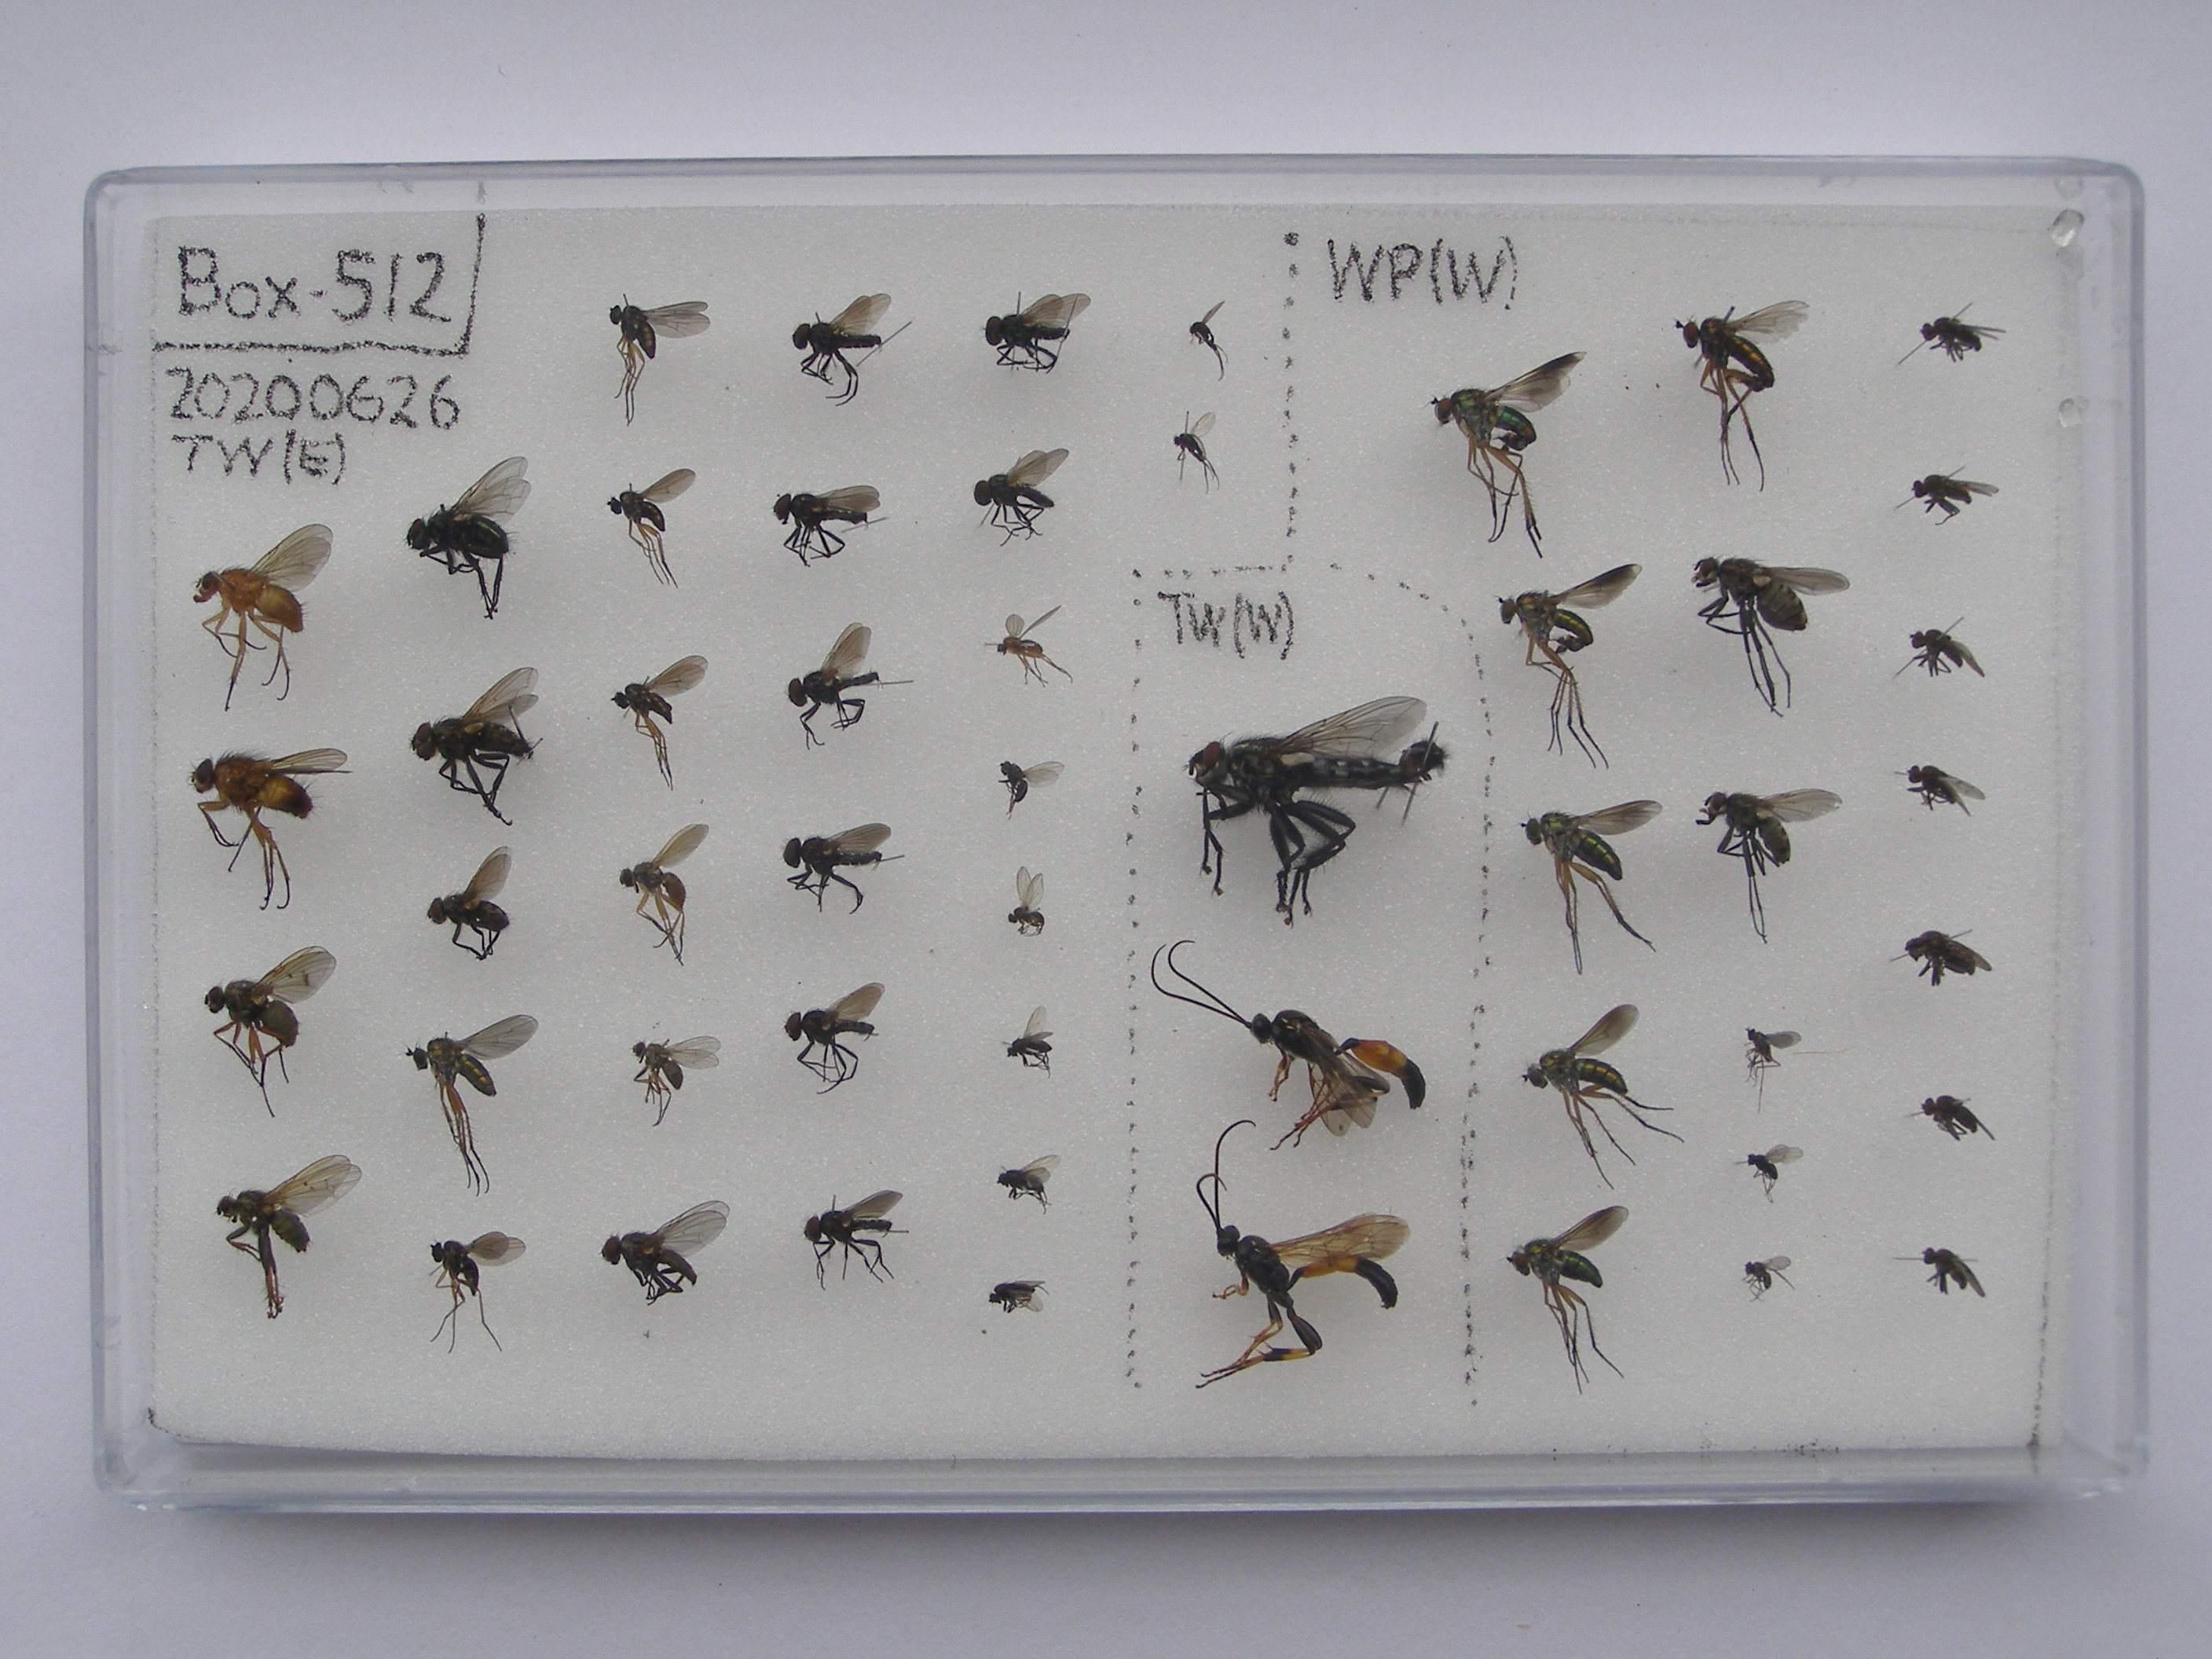 Box-512
20200626
TW(E)
WP(W)
TW(W)